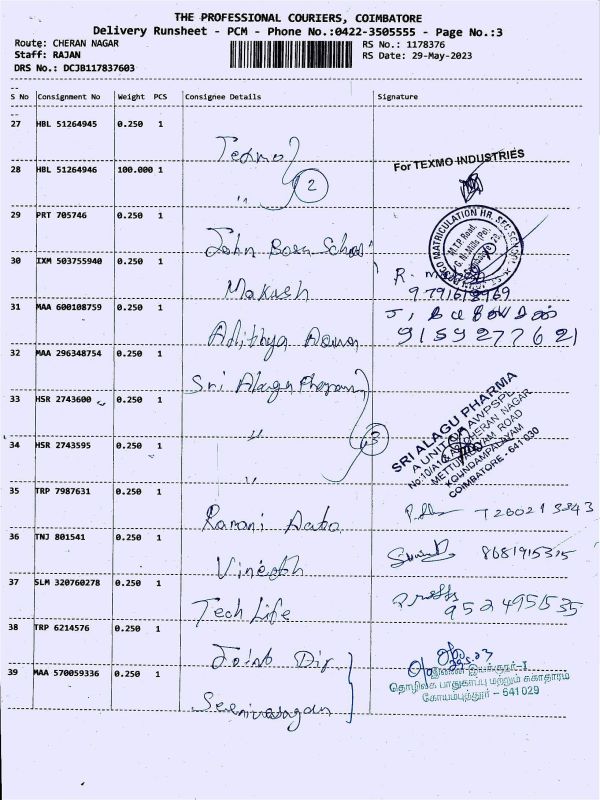 THE PROFESSIONAL COURIERS, COIMBATORE
Delivery Runsheet - PCM - Phone No.:0422-3505555 - Page No.:3
Route: CHERAN NAGAR RS No.: 1178376
Staff: RAJAN RS Date: 29-May-2023
DRS No.: DCJB117837603
S No Consignment No Weight PCS Consignee Details Signature
27 HBL 51264945 0.250 1 Texmo
28 HBL 51264946 100.000 1 " 2
For TEXMO INDUSTRIES
29 PRT 705746 0.250 1 John Bosco School
MATRICULATION HR. SEC SCHOOL
M.T.P. Road,
G.N. Mills (Po),
30 IXM 503755940 0.250 1 Makesh
R.
31 MAA 600108759 0.250 1 Adithya
9159277621
32 MAA 296348754 0.250 1 Sri Alagu Pharma
33 HSR 2743600 0.250 1 " 3
34 HSR 2743595 0.250 1 "
SRI ALAGU PHARMA
A UNIT OF AWPSPL
CHERAN NAGAR
METTUPALAYAM ROAD
KOUNDAMPALAYAM
COIMBATORE - 641 030
35 TRP 7987631 0.250 1 Ramani
36 TNJ 801541 0.250 1 Vinesh
8681915315
37 SLM 320760278 0.250 1 Tech Life
9524951535
38 TRP 6214576 0.250 1 Joint Dir
39 MAA 570059336 0.250 1
இணை இயக்குநர்-I
தொழிலக பாதுகாப்பு மற்றும் சுகாதாரம்
கோயம்புத்தூர் - 641029